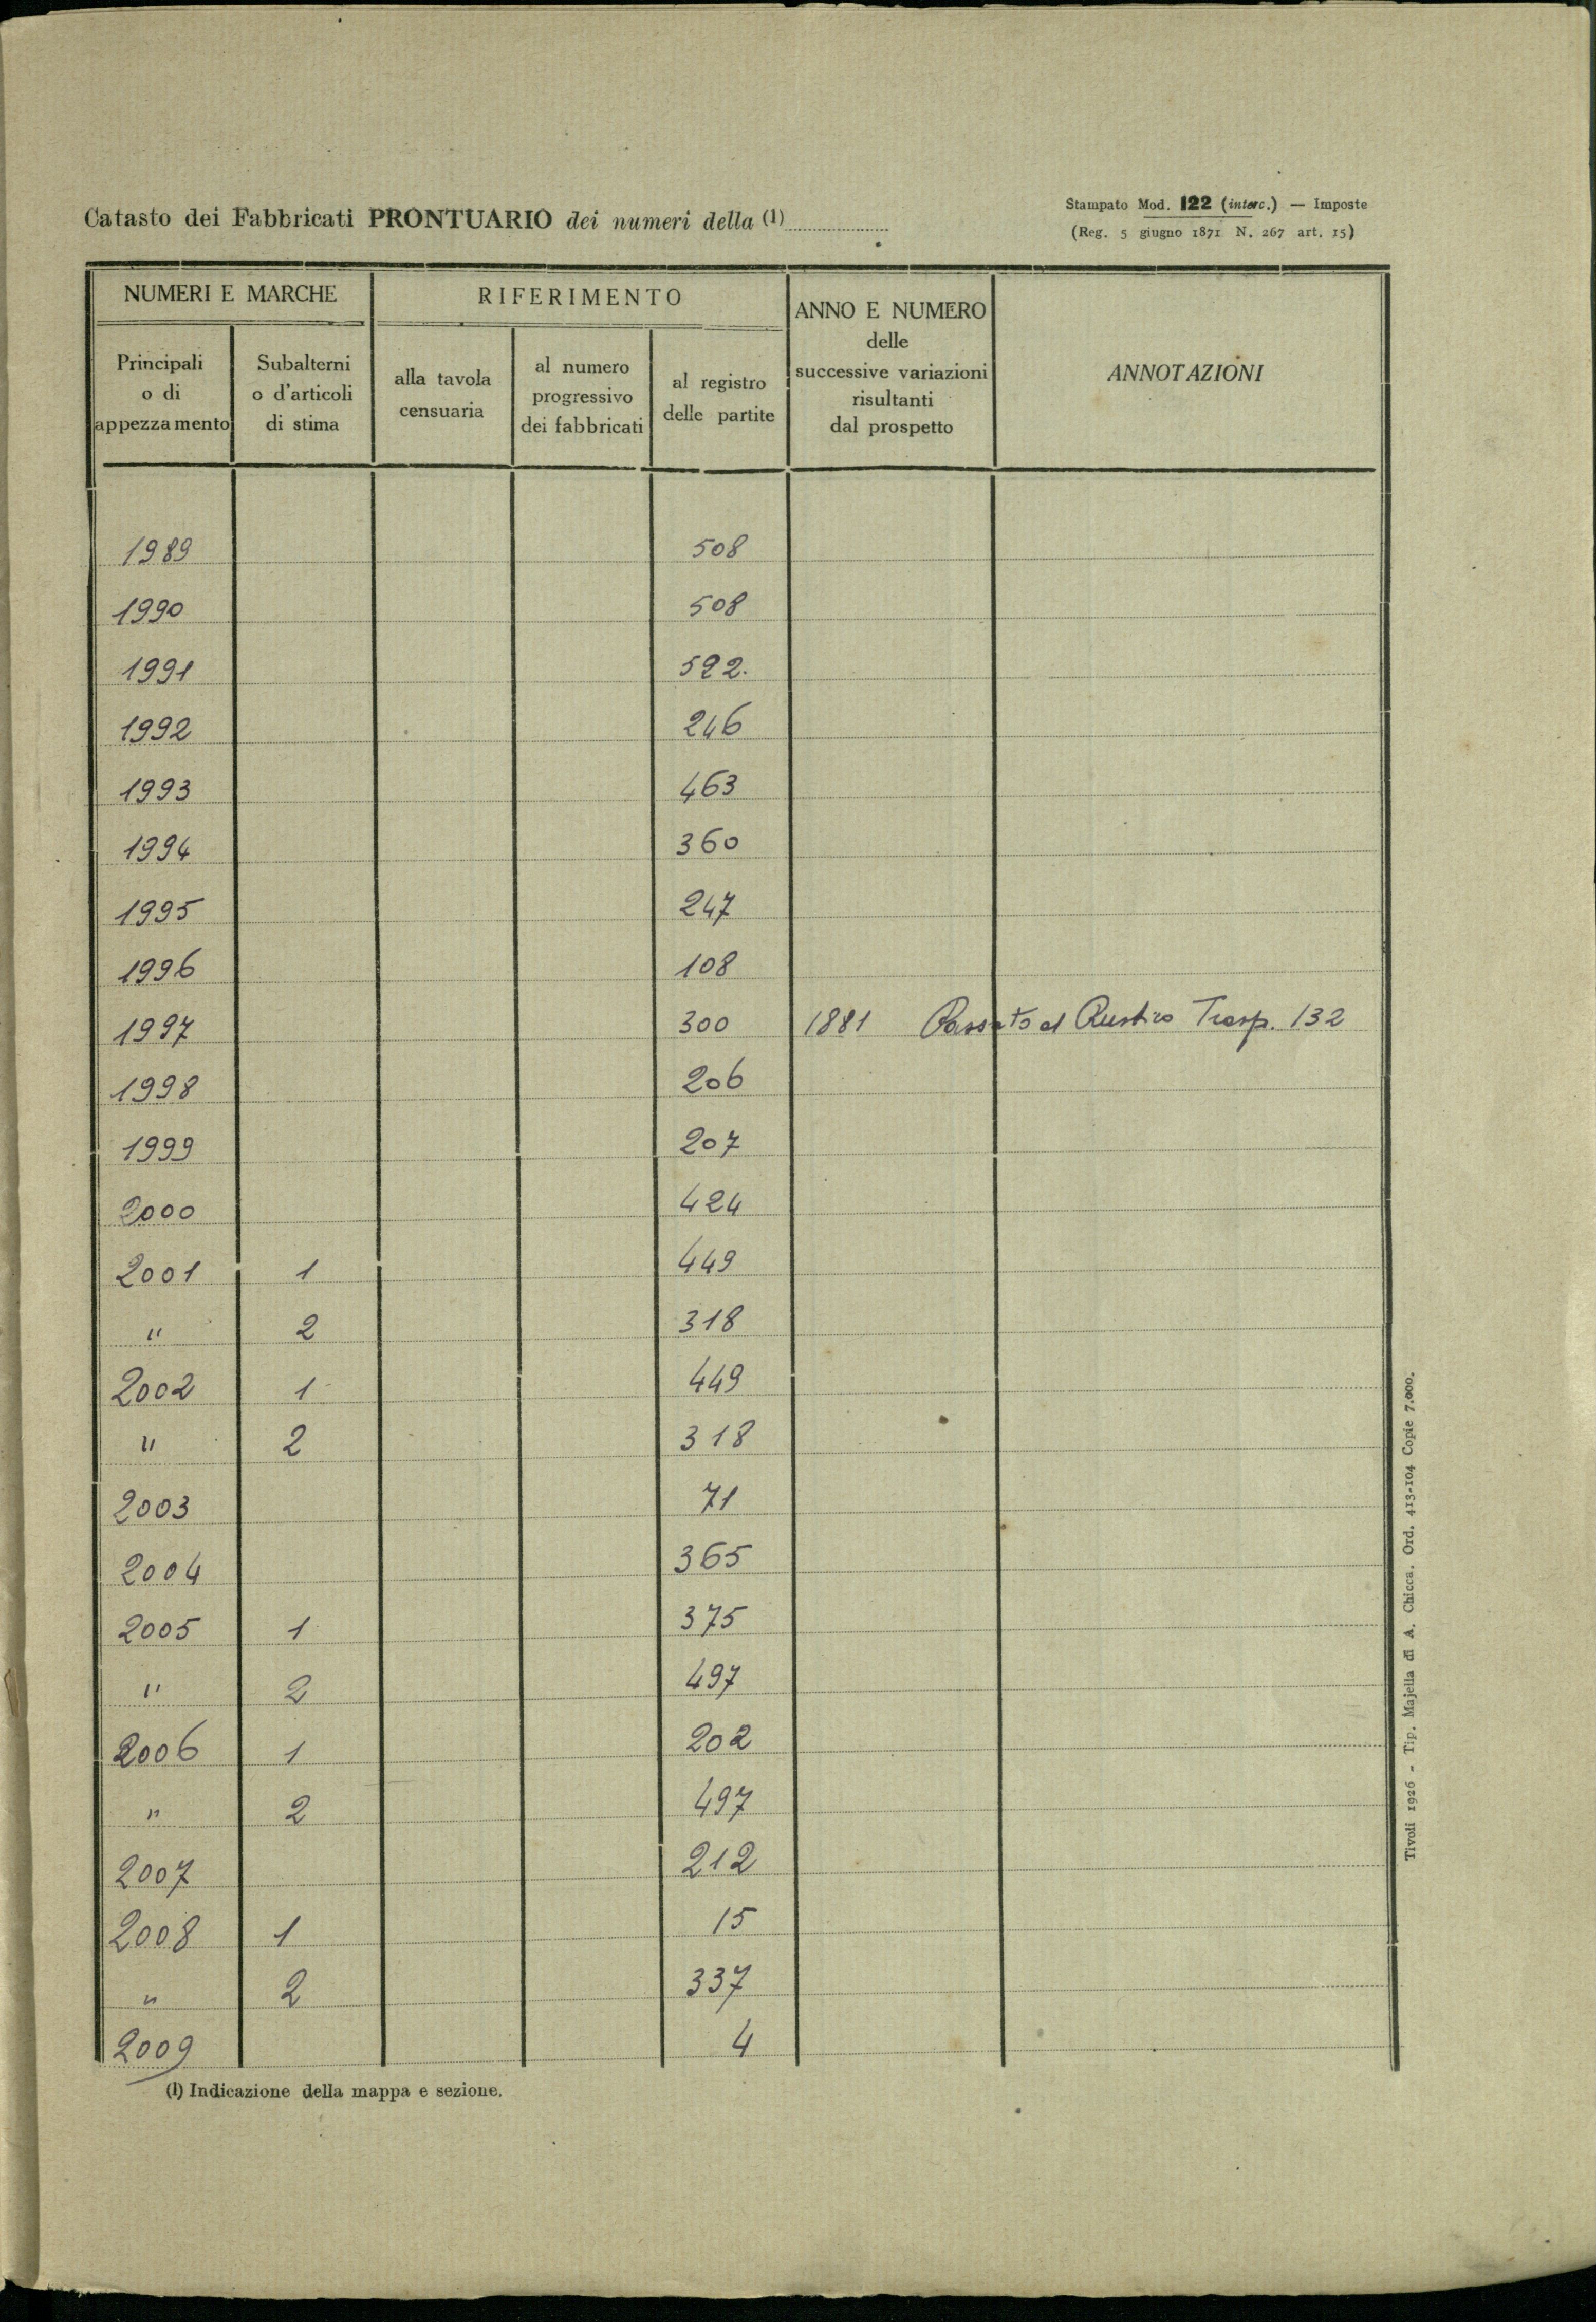 Catasto dei Fabbricati PRONTUARIO dei numeri della (1)
Stampato Mod. 122 (interc.) — Imposte
(Reg. 5 giugno 1871 N. 267 art. 15)
NUMERI E MARCHE
RIFERIMENTO
ANNO E NUMERO
delle
successive variazioni
risultanti
dal prospetto
ANNOTAZIONI
Principali
o di
appezzamento
Subalterni
o d'articoli
di stima
alla tavola
censuaria
al numero
progressivo
dei fabbricati
al registro
delle partite
1989 508
1990 508
1991 592.
1992 246
1993 463
1994 360
1995 247
1996 108
1997 300 1881 Passato al Rustico Trasp. 132
1998 206
1999 207
2000 424
2001 1 449
" 2 318
2002 1 449
" 2 318
2003 71
2004 365
2005 1 375
" 2 497
2006 1 202
" 2 497
2007 212
2008 1 15
" 2 337
2009 4
(1) Indicazione della mappa e sezione.
Tivoli 1926 - Tip. Majella di A. Chicca. Ord. 413-104 Copie 7.000.